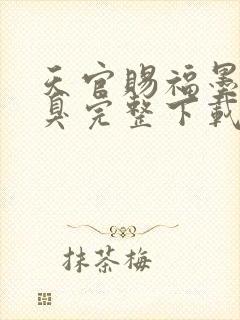 天官赐福墨
臭完整下载
抹茶梅